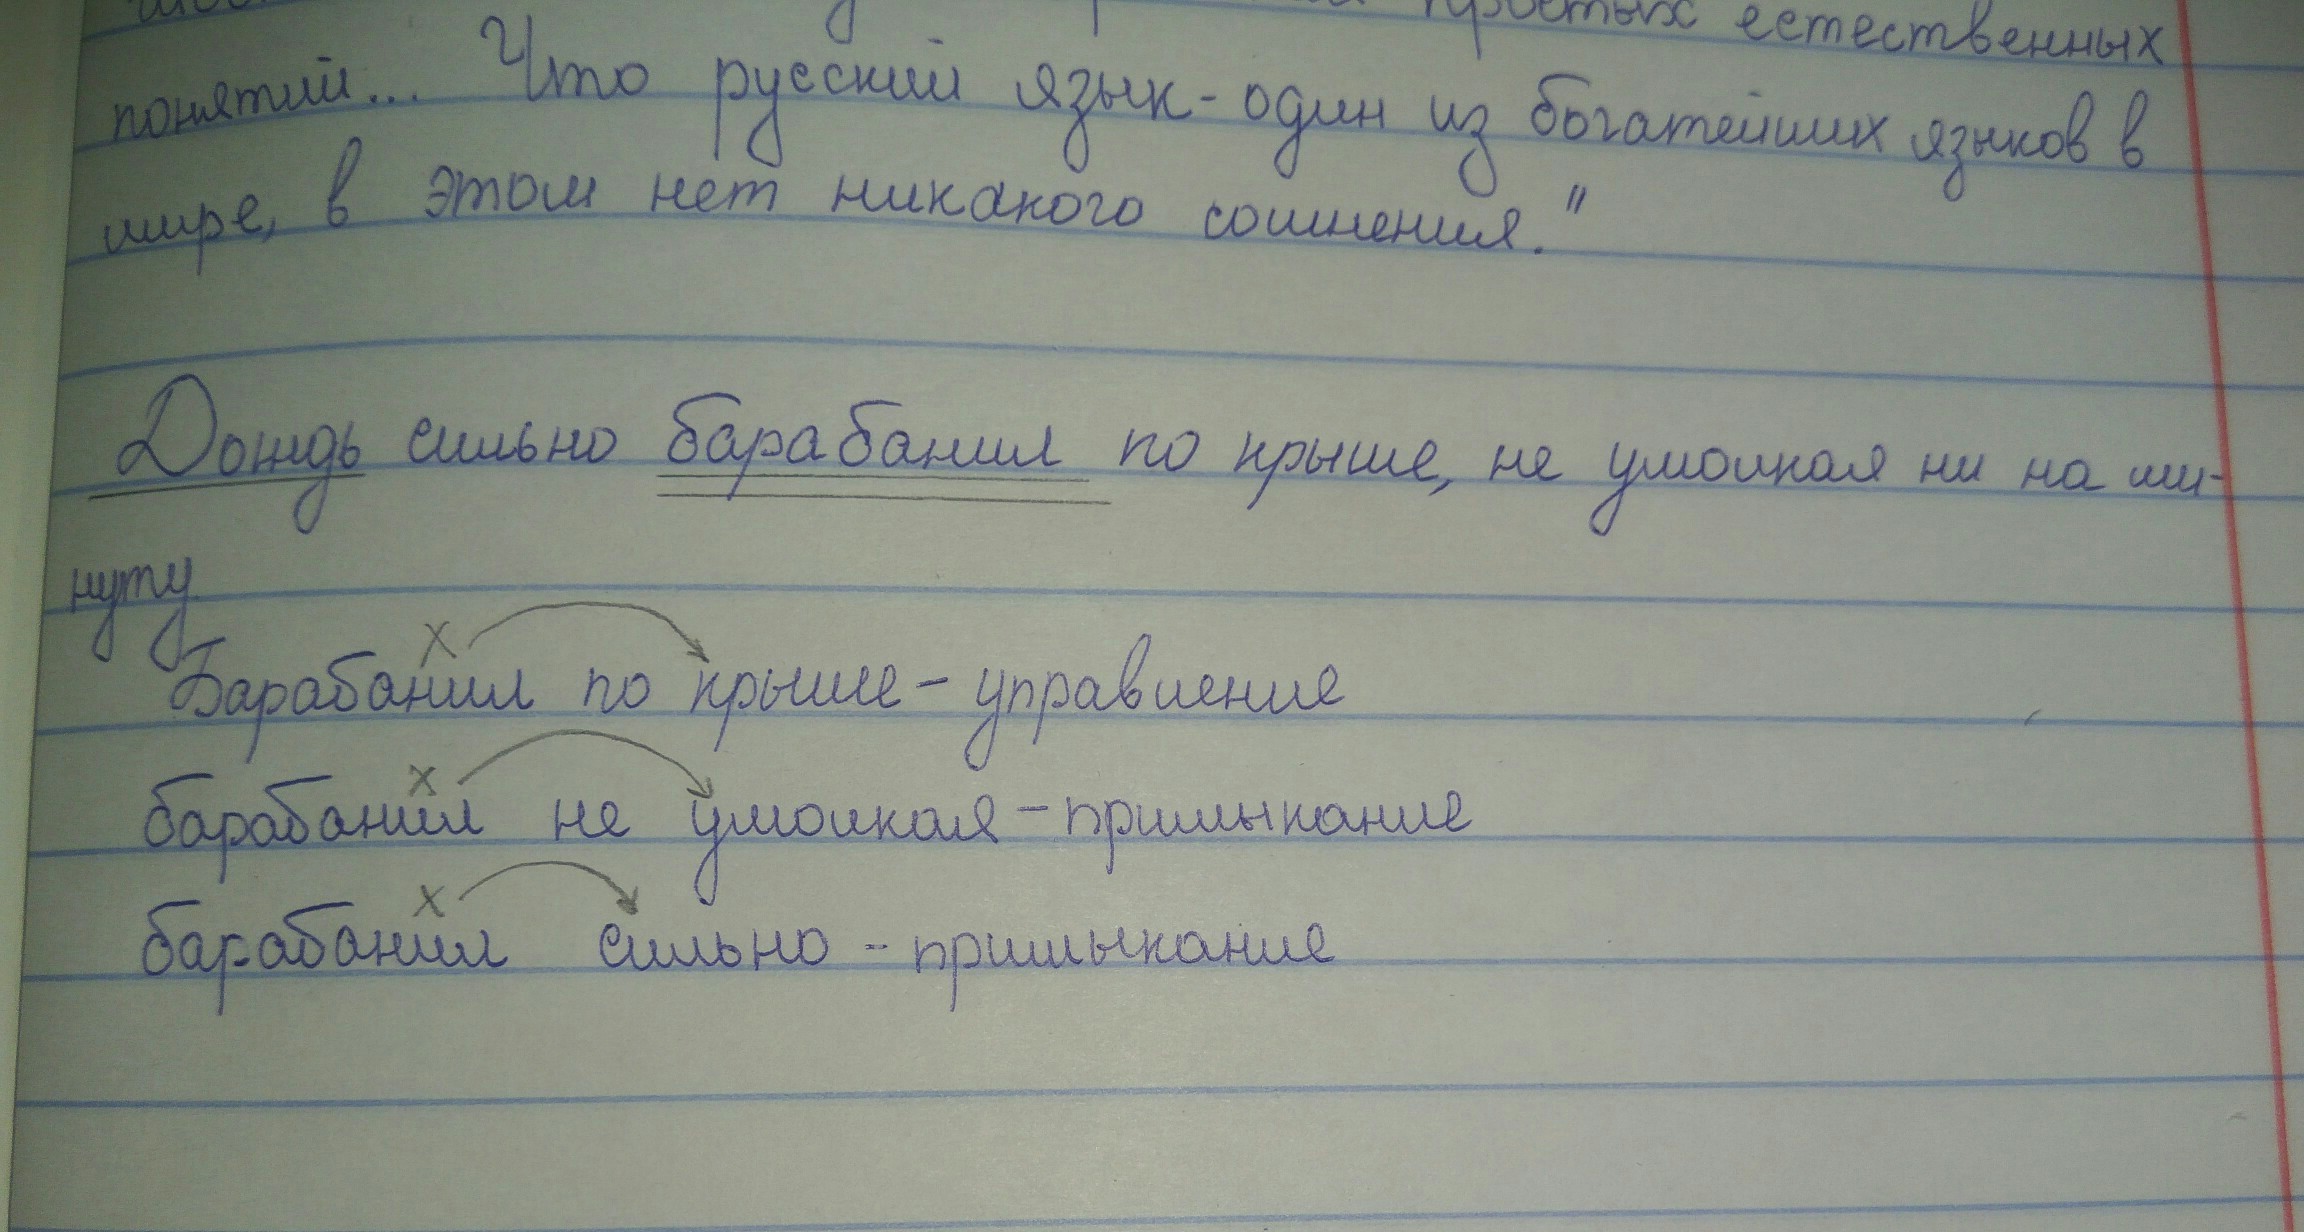 простых естественных
понятий... Что русский язык - один из богатейших языков в
мире, в этом нет никакого сомнения."
Дождь сильно барабанил по крыше, не умолкая ни на ми-
нуту
Барабанил по крыше - управление
барабанил не умолкая - примыкание
барабанил сильно - примыкание